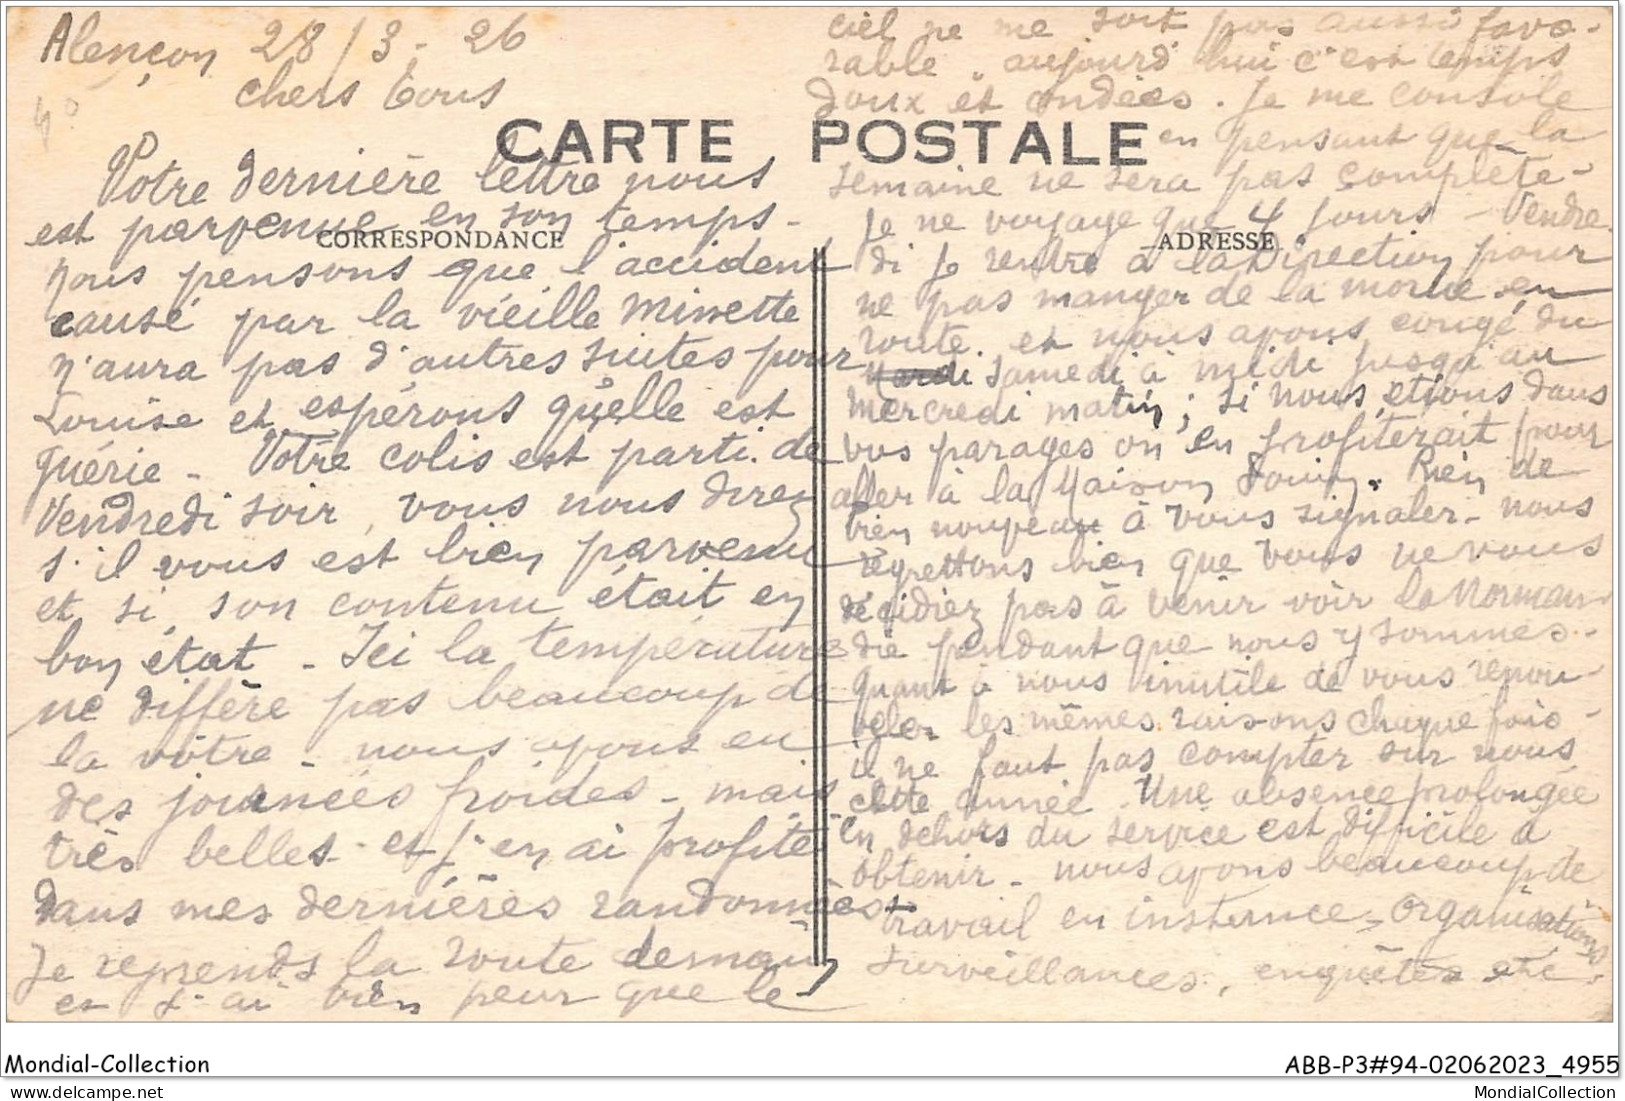 Alençon 28/3-26
4°
chers Tous
CARTE POSTALE
CORRESPONDANCE
ADRESSE
Votre dernière lettre nous
est parvenue en son temps -
nous pensons que l'accident
causé par la vieille Minette
n'aura pas d'autres suites pour
Louise et espérons qu'elle est
guérie - Votre colis est parti de
Vendredi soir, vous nous direz
s'il vous est bien parvenu
et si son contenu était en
bon état - Ici la température
ne diffère pas beaucoup de
la vôtre - nous avons eu
des journées froides - mais
très belles - et j'en ai profité
dans mes dernières randonnées
Je reprends la route demain
et j'ai bien peur que le
ciel ne me soit pas aussi favo-
rable, aujourd'hui c'est temps
doux et ondées. Je me console
en pensant que la
semaine ne sera pas complète -
Je ne voyage que 4 jours - Vendre
di je rentre à la Direction pour
ne pas manger de la morue en
route. et nous avons congé du
Mardi Samedi à midi jusqu'au
Mercredi matin; si nous étions dans
vos parages on en profiterait pour
aller à la Maison. Rien de
bien nouveau à vous signaler - nous
regrettons bien que vous ne vous
décidiez pas à venir voir la Norman-
die pendant que nous y sommes -
Quant à nous inutile de vous renou-
veler les mêmes raisons chaque fois -
il ne faut pas compter sur nous
cette année. Une absence prolongée
en dehors du service est difficile à
obtenir - nous avons beaucoup de
travail en instance, organisations
surveillances, enquêtes etc.
Mondial-Collection
ABB-P3#94-02062023_4955
MondialCollection
MondialCollection